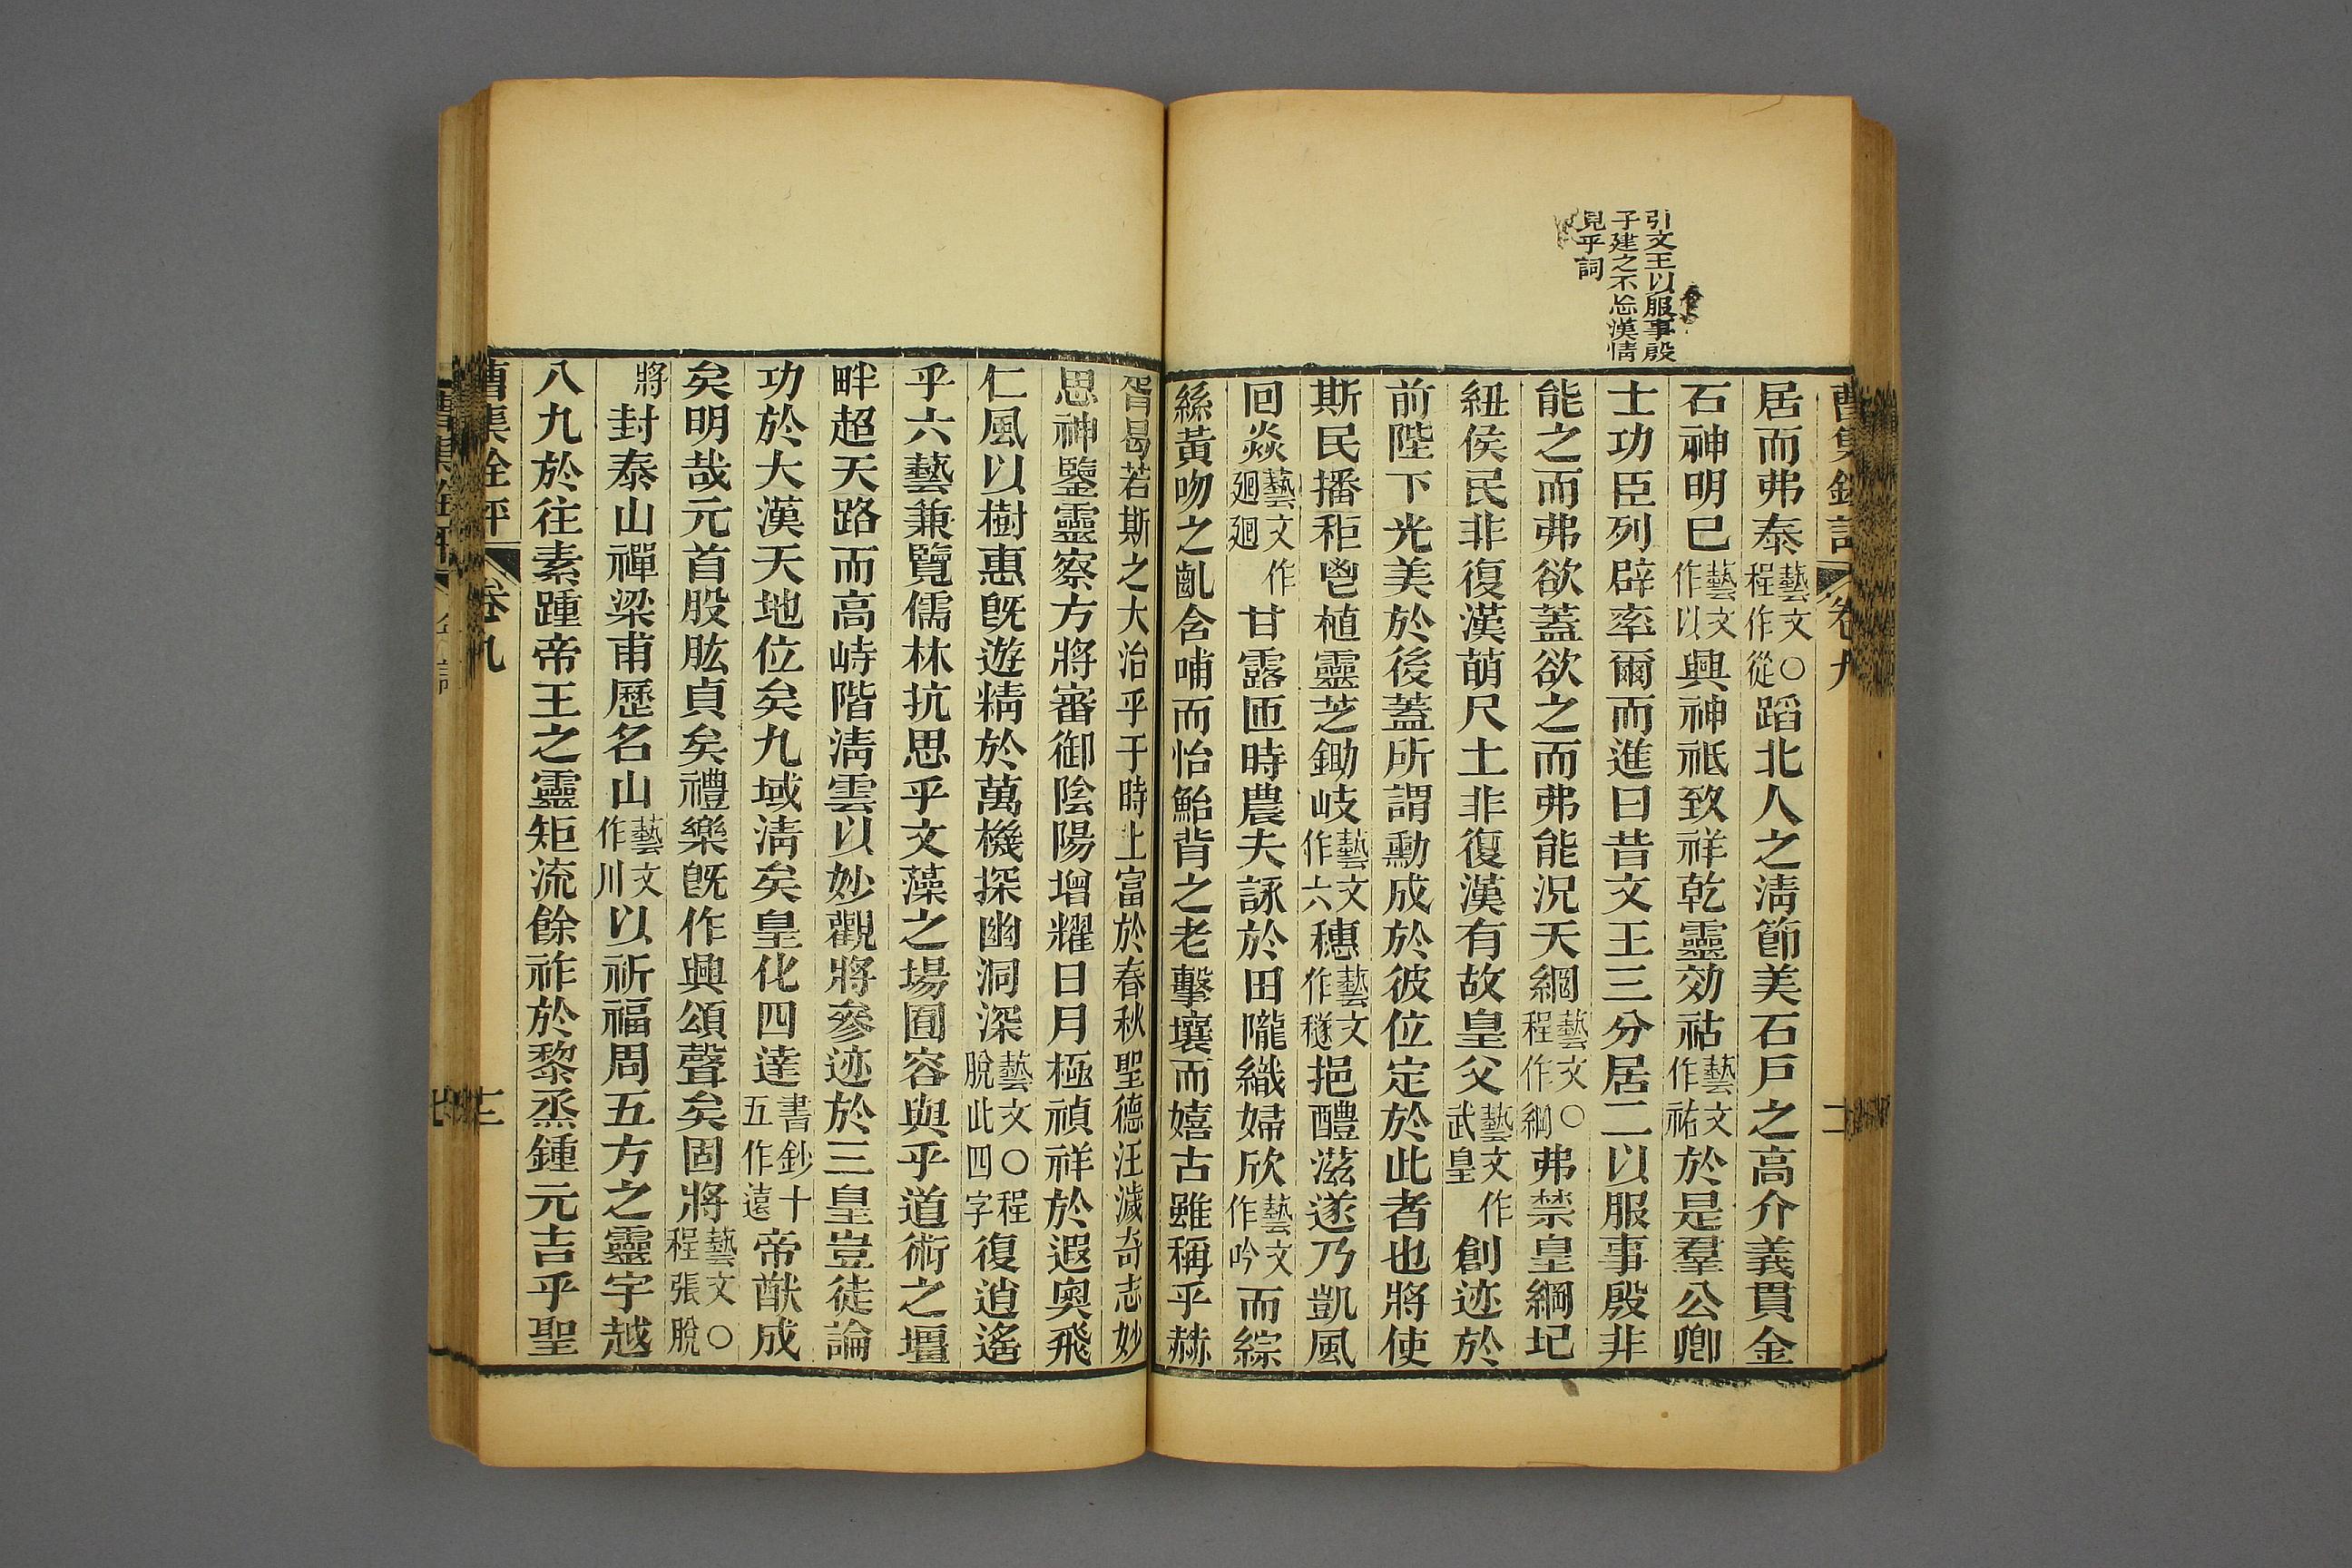 引文王以服事殷
子建之不忘漢情
見乎詞
卷九
二
居而弗泰藝文〇程作從蹈北人之清節美石戶之高介義貫金
石神明巳藝文作以興神祗致祥乾靈効祜藝文作祐於是羣公卿
士功臣列辟率爾而進曰昔文王三分居二以服事殷非
能之而弗欲蓋欲之而弗能況天網藝文〇程作綱弗禁皇綱圮
紐侯民非復漢萌尺土非復漢有故皇父藝文作武皇創迹於
前陛下光美於後蓋所謂勳成於彼位定於此者也將使
斯民播秬鬯植靈芝鋤岐藝文作六穗藝文作穟挹醴滋遂乃凱風
回焱藝文作廻廻甘露匝時農夫詠於田隴織婦欣藝文作吟而綜
絲黃吻之齓含哺而怡鮐背之老擊壤而嬉古雖稱乎赫
胥曷若斯之大治乎于時上富於春秋聖德汪濊奇志妙
思神鑒靈察方將審御陰陽增耀日月極禎祥於遐奧飛
仁風以樹惠旣遊精於萬機探幽洞深藝文〇程脫此四字復逍遙
乎六藝兼覽儒林抗思乎文藻之場囿容與乎道術之壇
畔超天路而高峙階清雲以妙觀將參迹於三皇豈徒論
功於大漢天地位矣九域清矣皇化四達書鈔十五作遠帝猷成
矣明哉元首股肱貞矣禮樂旣作興頌聲矣固將藝文〇程張脫
將封泰山禪梁甫歷名山藝文作川以祈福周五方之靈宇越
八九於往素踵帝王之靈矩流餘祚於黎烝鍾元吉乎聖
曹集銓評
卷九
三